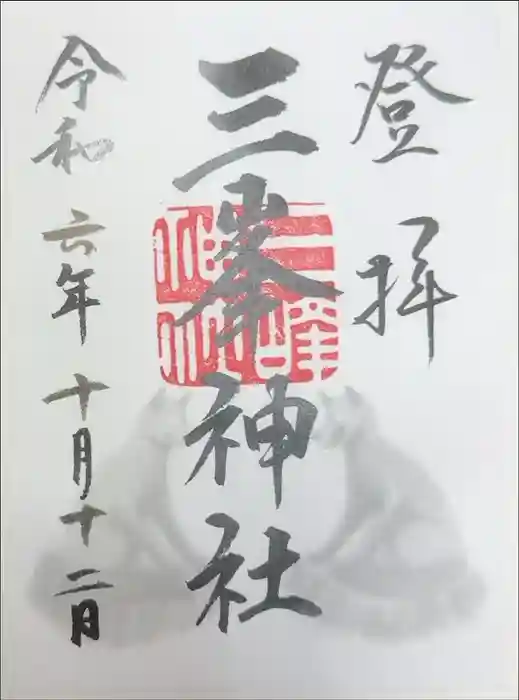 登拝
三峯神社
三峰神社
令和六年十月十二日